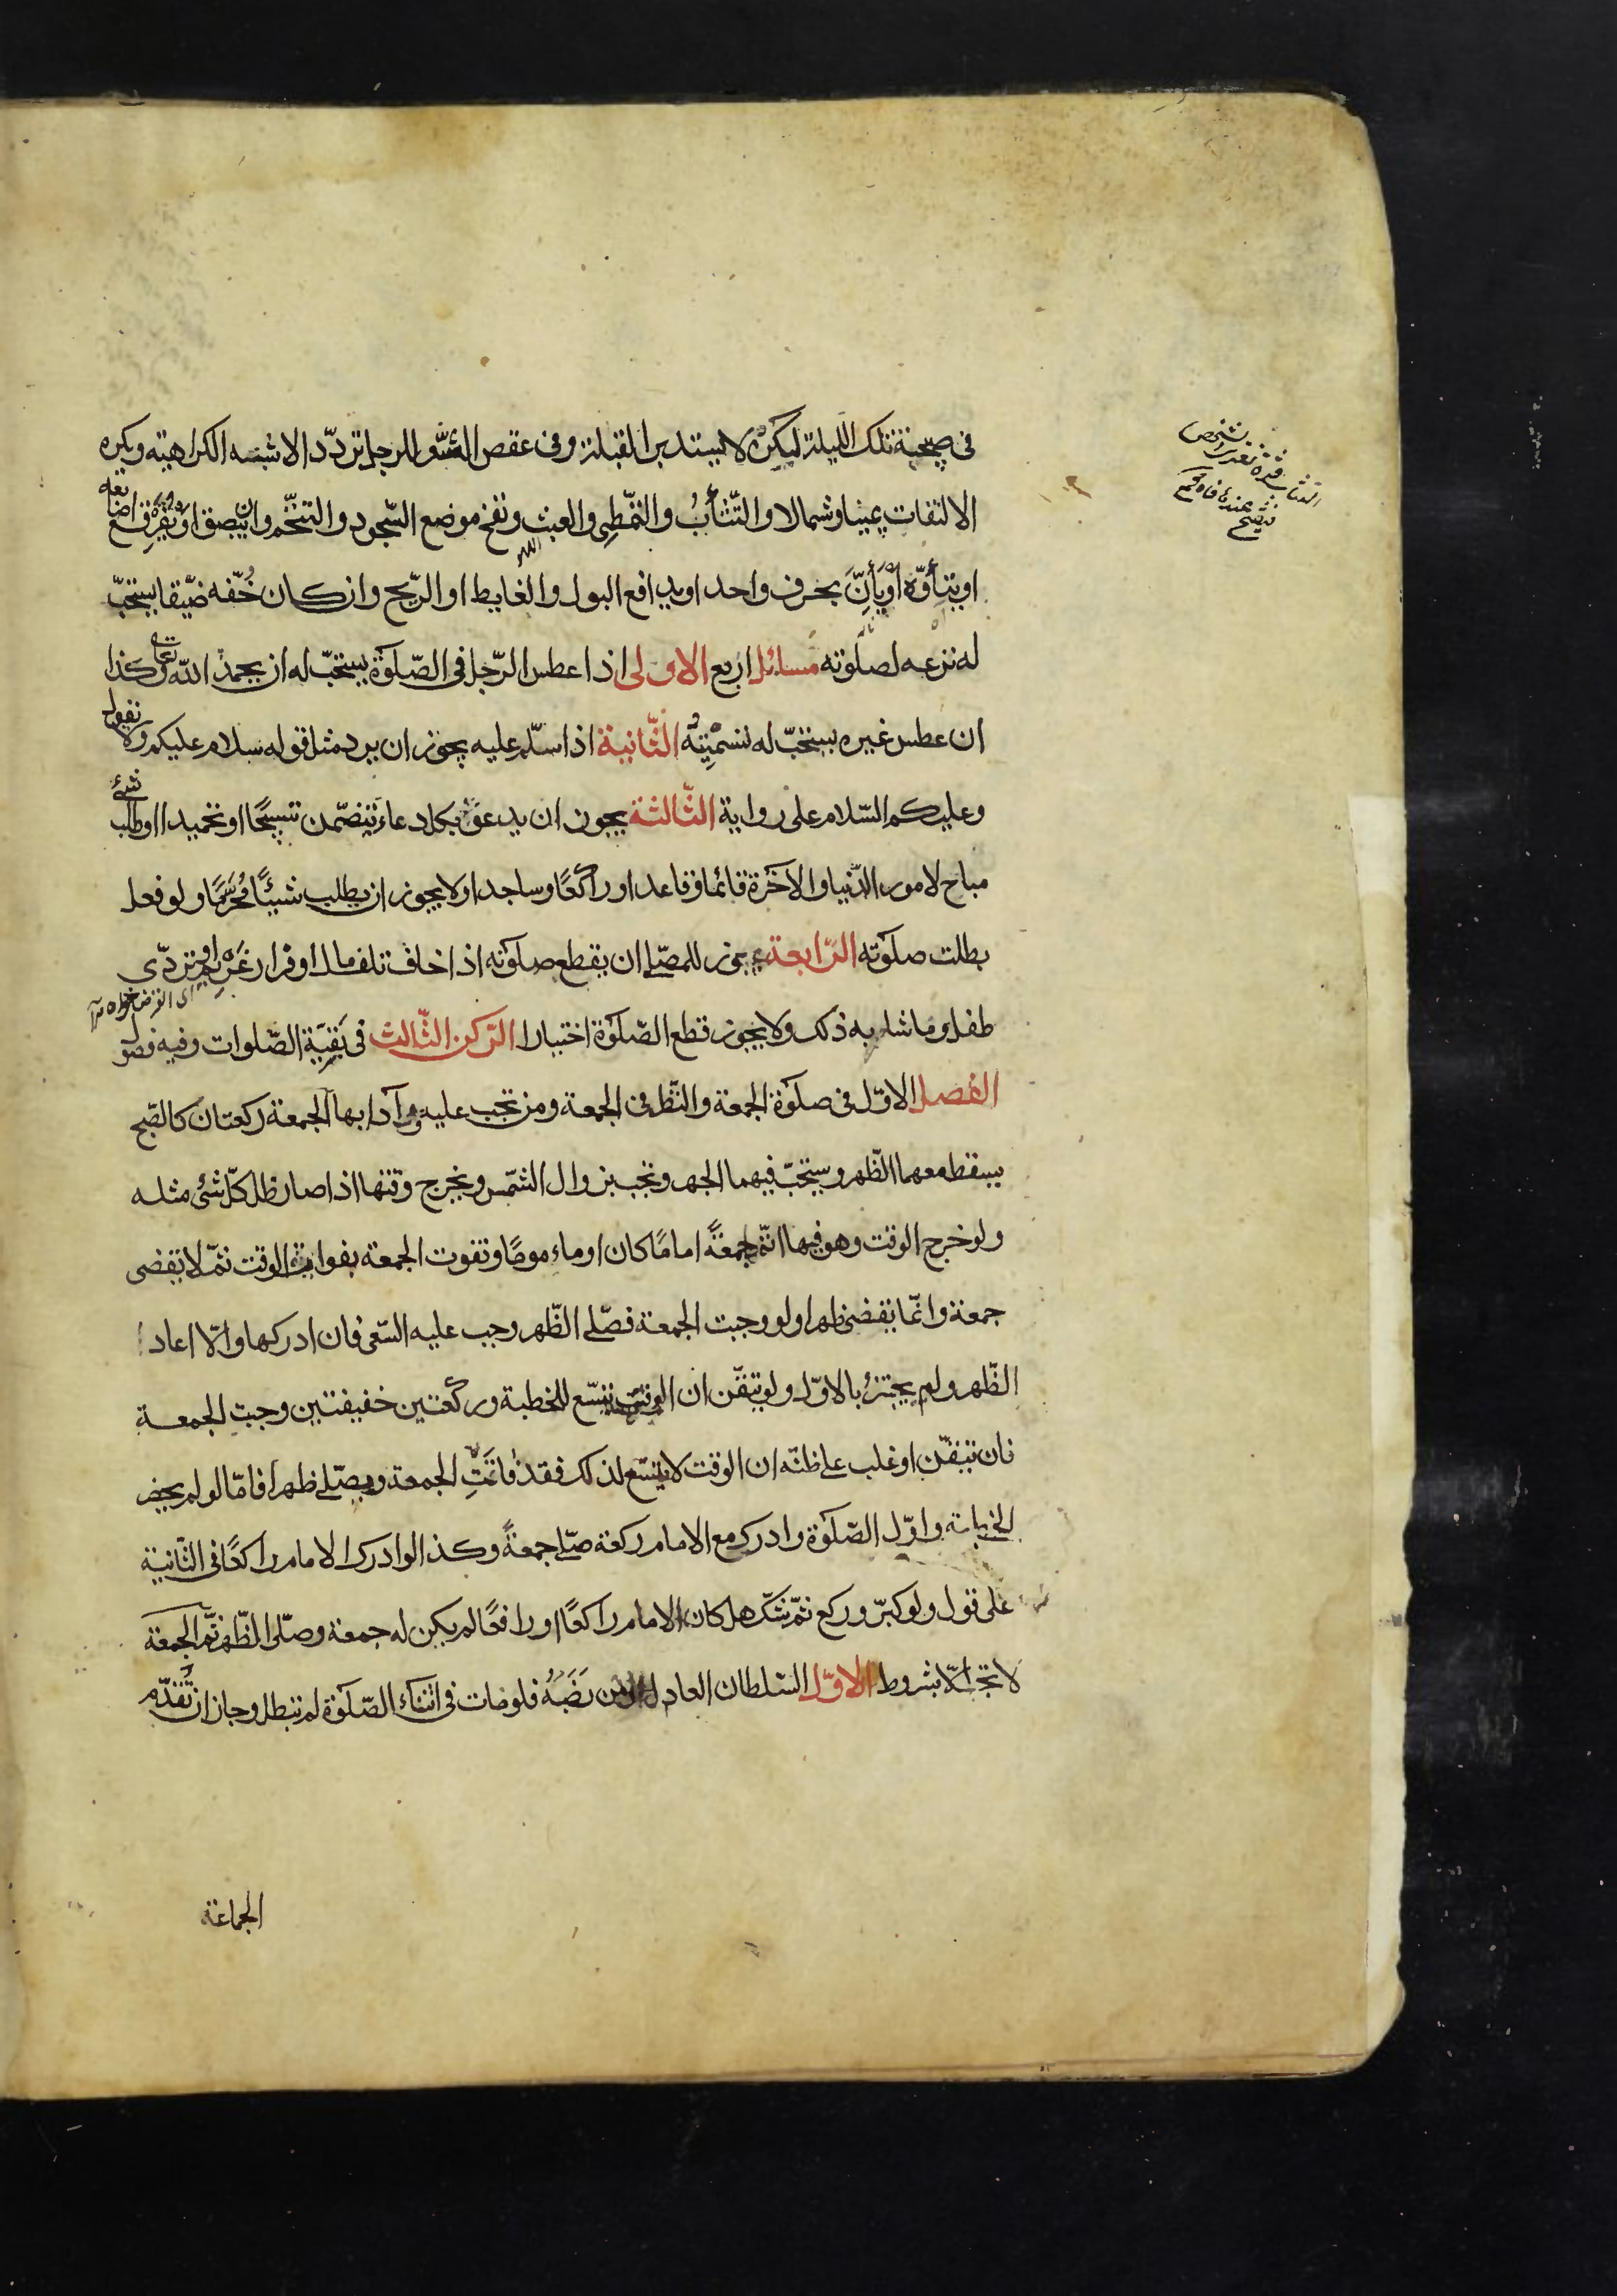 في صبيحة تلك الليلة لكن لا يستدبر القبلة وفى عقص الشعر للرجل تردّد الاشبه الكراهية ويكره
الالتفات يمينا وشمالا والتّثأبُ والتمّطى والعبث ونفخ موضع السّجود والتنخّم وان يبصق او يفرقع اصابعه
او يتأوّه او يَأنَّ بحرف واحد او يدافع البول والغايط او الرّيح وان كان خُفّه ضيّقا يستحبّ
له نزعه لصلوته مسائل اربع الاولى اذا عطس الرّجل فى الصّلوة يستحبّ له ان يحمد الله تعالى وكذا
ان عطس غيره يستحبّ له تسميته الثّانية اذا سلّم عليه يجوز ان يرد مثل قوله سلام عليكم ولا يقول
وعليكم السّلام على رواية الثّالثة يجوز ان يدعو بكل دعاء يتضمّن تسبيحًا او تحميدا او طلب شئ
مباح لامور الدّنيا والاخرة قائما وقاعدا وراكعًا وساجدا ولا يجوز ان يطلب شيئًا مُحَرَّمًا ولو فعل
بطلت صلوته الرّابعة يجوز للمصلّى ان يقطع صلوته اذا خاف تلف مال او فرار غريم او تردّى
طفل وما شابه ذلك ولا يجوز قطع الصّلوة اختيارا الرّكن الثّالث فى بقيّة الصّلوات وفيه فصول
الفصل الاوّل فى صلوة الجمعة والنّظر فى الجمعة ومن تجب عليه وآدابها الجمعة ركعتان كالصّبح
يسقط معهما الظّهر ويستحبّ فيهما الجهر وتجب بزوال الشّمس ويخرج وقتها اذا صار ظل كلّ شئ مثله
ولو خرج الوقت وهو فيها اتمّ جمعةً امامًا كان او ماءمومًا وتفوت الجمعة بفوات الوقت ثمّ لا تقضى
جمعة وانّما تقضى ظهرا ولو وجبت الجمعة فصلّى الظّهر وجب عليه السّعى فان ادركها والّا اعاد
الظّهر ولم يجتزء بالاوّل ولو تيقّن ان الوقت يتسّع للخطبة وركعتين خفيفتين وجبت الجمعة
فان تيقّن او غلب على ظنّه ان الوقت لا يتسّع لذلك فقد فاتَتِ الجمعة ويصلّى ظهرا فامّا لو لم يحضر
الخطبة واوّل الصّلوة وادرك مع الامام ركعة صلّى جمعةً وكذا لو ادرك الامام راكعًا فى الثّانية
على قول ولو كبّر وركع ثمّ شكّ هل كان الامام راكعًا او رافعًا لم يكن له جمعة وصلّى الظّهر ثمّ الجمعة
لا تجب الّا بشروط الاوّل السّلطان العادل او من نَصَبَهُ فلو مات فى اثناء الصّلوة لم تبطل وجاز ان تُقَدّم
الجماعة